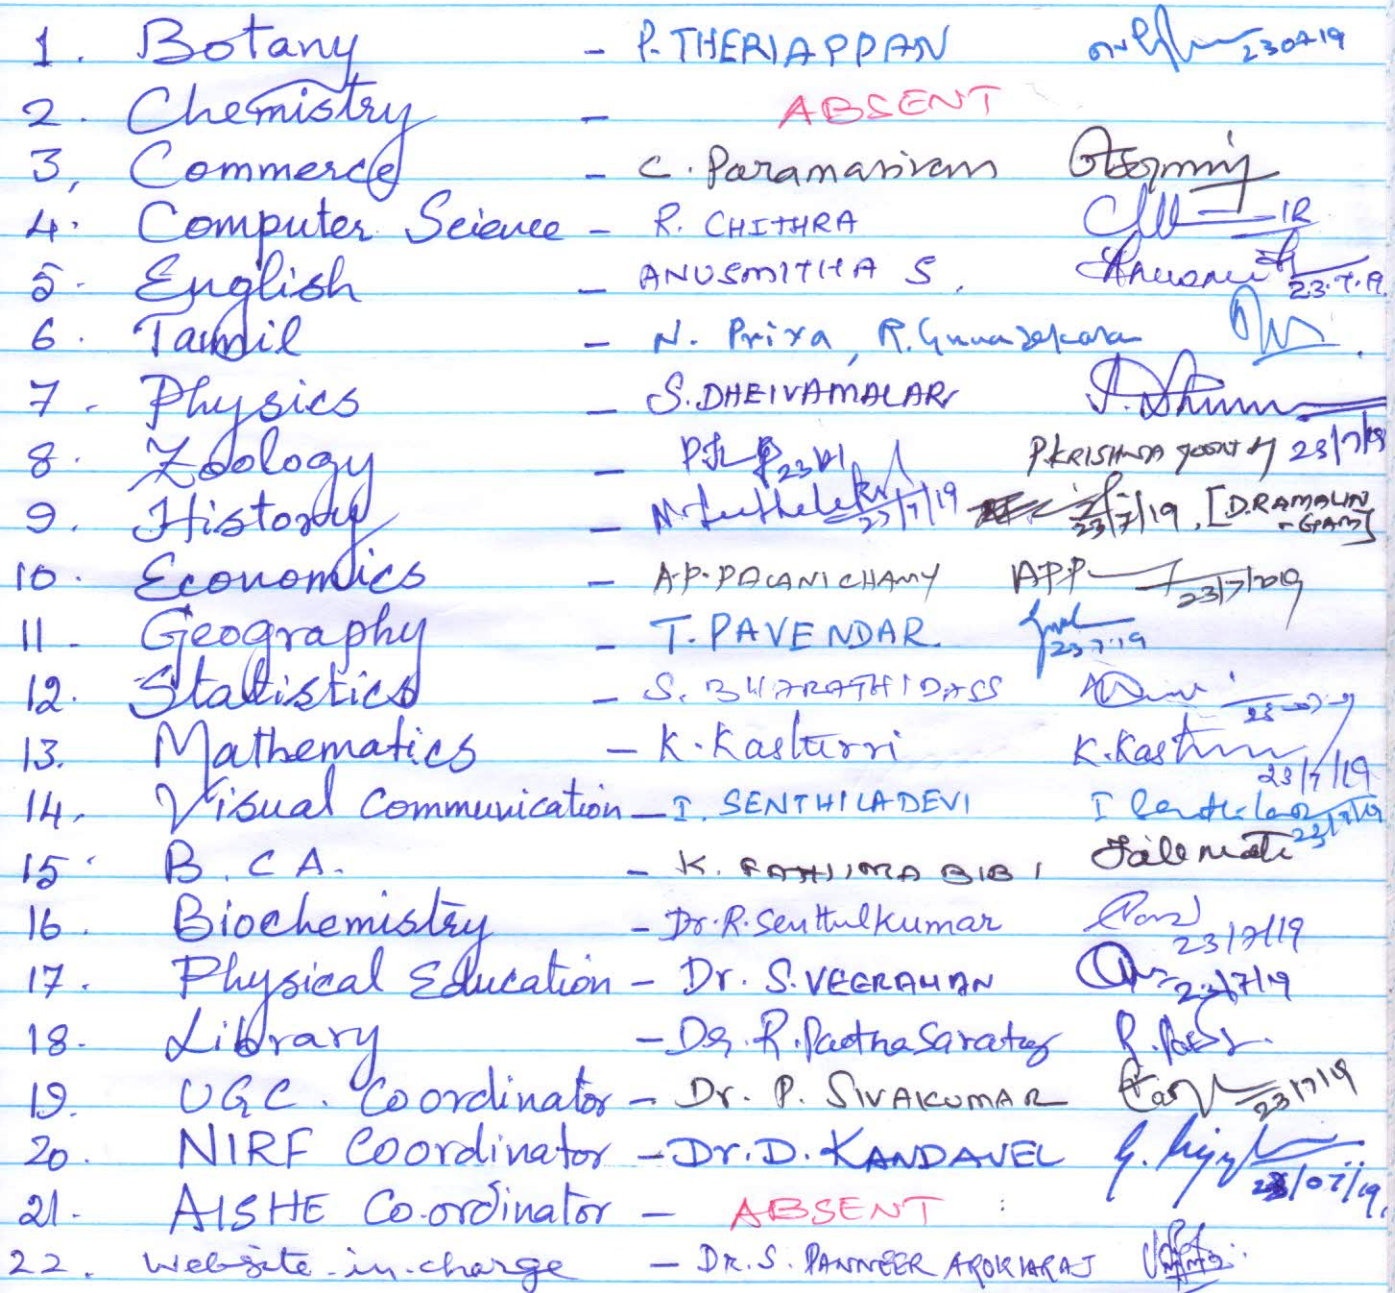 1. Botany - P. THERIAPPAN 230719
2. Chemistry - ABSENT
3, Commerce - C. Paramasivam
4. Computer Science - R. CHITHRA
5. English - ANUSMITHA S. 23.7.19
6. Tamil - N. Priya, R. Gunasekara
7. Physics - S. DHEIVAMALAR
8. Zoology - P. KRISHNA MOORTHY 23/7/19
9. History - 23/7/19 23/7/19, [D.RAMALIN-GAM]
10. Economics - A.P. PALANICHAMY APP 23/7/2019
11. Geography - T. PAVENDAR. 23.7.19
12. Statistics - S. BHARATHIDASS
13. Mathematics - K. Kasturi K. Kasturi 23/7/19
14. Visual Communication - I. SENTHILADEVI 23/7/19
15. B.C.A. - K. FATHIMA BIBI
16. Biochemistry - Dr. R. Senthulkumar 23/7/19
17. Physical Education - Dr. S. VEERAMAN 23/7/19
18. Library - Dr. R. Parthasarathy
19. UGC. Coordinator - Dr. P. SIVAKUMAR 23/7/19
20. NIRF Coordinator - Dr. D. KANDAVEL 23/07/19
21. AISHE Co.ordinator - ABSENT
22. Website-in-charge - DR. S. PANNEER AROKIARAJ